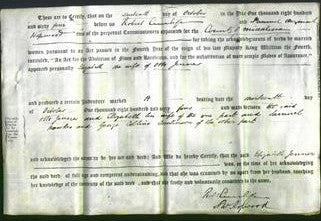 These are to Certify, that on the day of October in the Year One thousand eight hundred and
sixty four before us Robert Cunliffe and Samuel
Hopwood two of the perpetual Commissioners appointed for the County of Middlesex
for taking the acknowledgments of deeds by married
women, pursuant to an Act passed in the Fourth Year of the reign of his late Majesty King William the Fourth,
intituled, "An Act for the Abolition of Fines and Recoveries, and for the substitution of more simple Modes of Assurance,"
appeared personally Elizabeth the wife of Otto
and produced a certain Indenture marked A bearing date the day
of October One thousand eight hundred and sixty four and made between the said
Otto and Elizabeth his wife of the one part and Samuel
and George of the other part
and acknowledged the same to be her act and deed; And We do hereby certify, that the said Elizabeth
was, at the time of her acknowledging
the said deed, of full age and competent understanding, and that she was examined by us apart from her husband, touching
her knowledge of the contents of the said deed, and that she freely and voluntarily consented to the same.
Hopwood